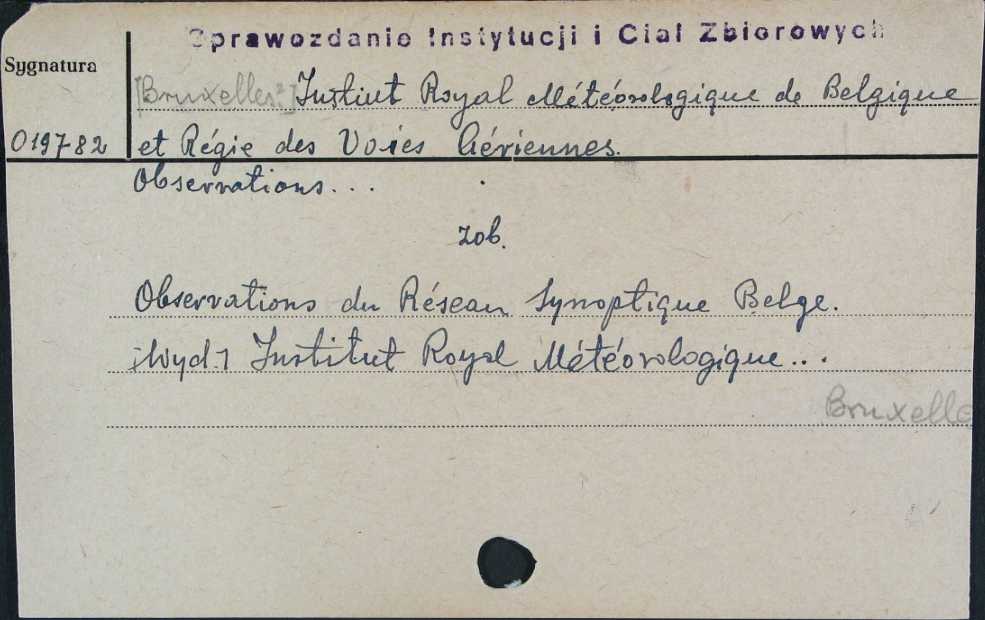 Sprawozdanie Instytucji i Ciał Zbiorowych
Sygnatura
[Bruxelles?] Institut Royal Météorologique de Belgique
019782
et Régie des Voies Aériennes.
Observations...
zob.
Observations du Réseau Synoptique Belge.
[Wyd.] Institut Royal Météorologique...
Bruxelle